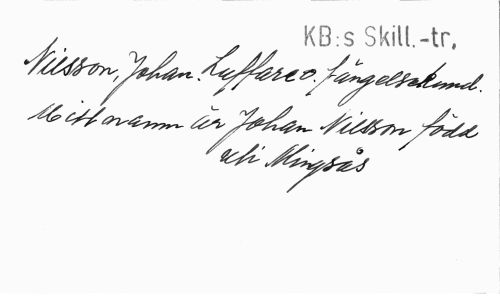 KB:s Skill.-tr.
Nilsson, Johan. Luffare o. fängelsekund.
Mitt namn är Johan Nilsson född
uti Mingsås